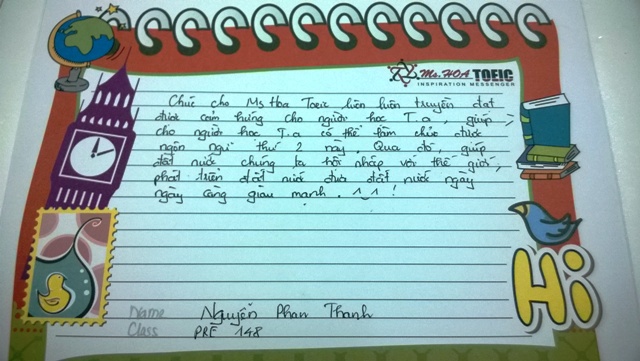 Ms. HOA TOEIC
INSPIRATION MESSENGER
Chúc cho Ms Hoa Toeic luôn luôn truyền đạt
được cảm hứng cho người học T.a, giúp
cho người học T.a có thể nắm chắc được
ngôn ngữ thứ 2 này. Qua đó, giúp
đất nước chúng ta hội nhập với thế giới,
phát triển đất nước đưa đất nước ngày
ngày càng giàu mạnh. ^_^ !
Hi
Name Nguyễn Phan Thanh
Class PRE 148